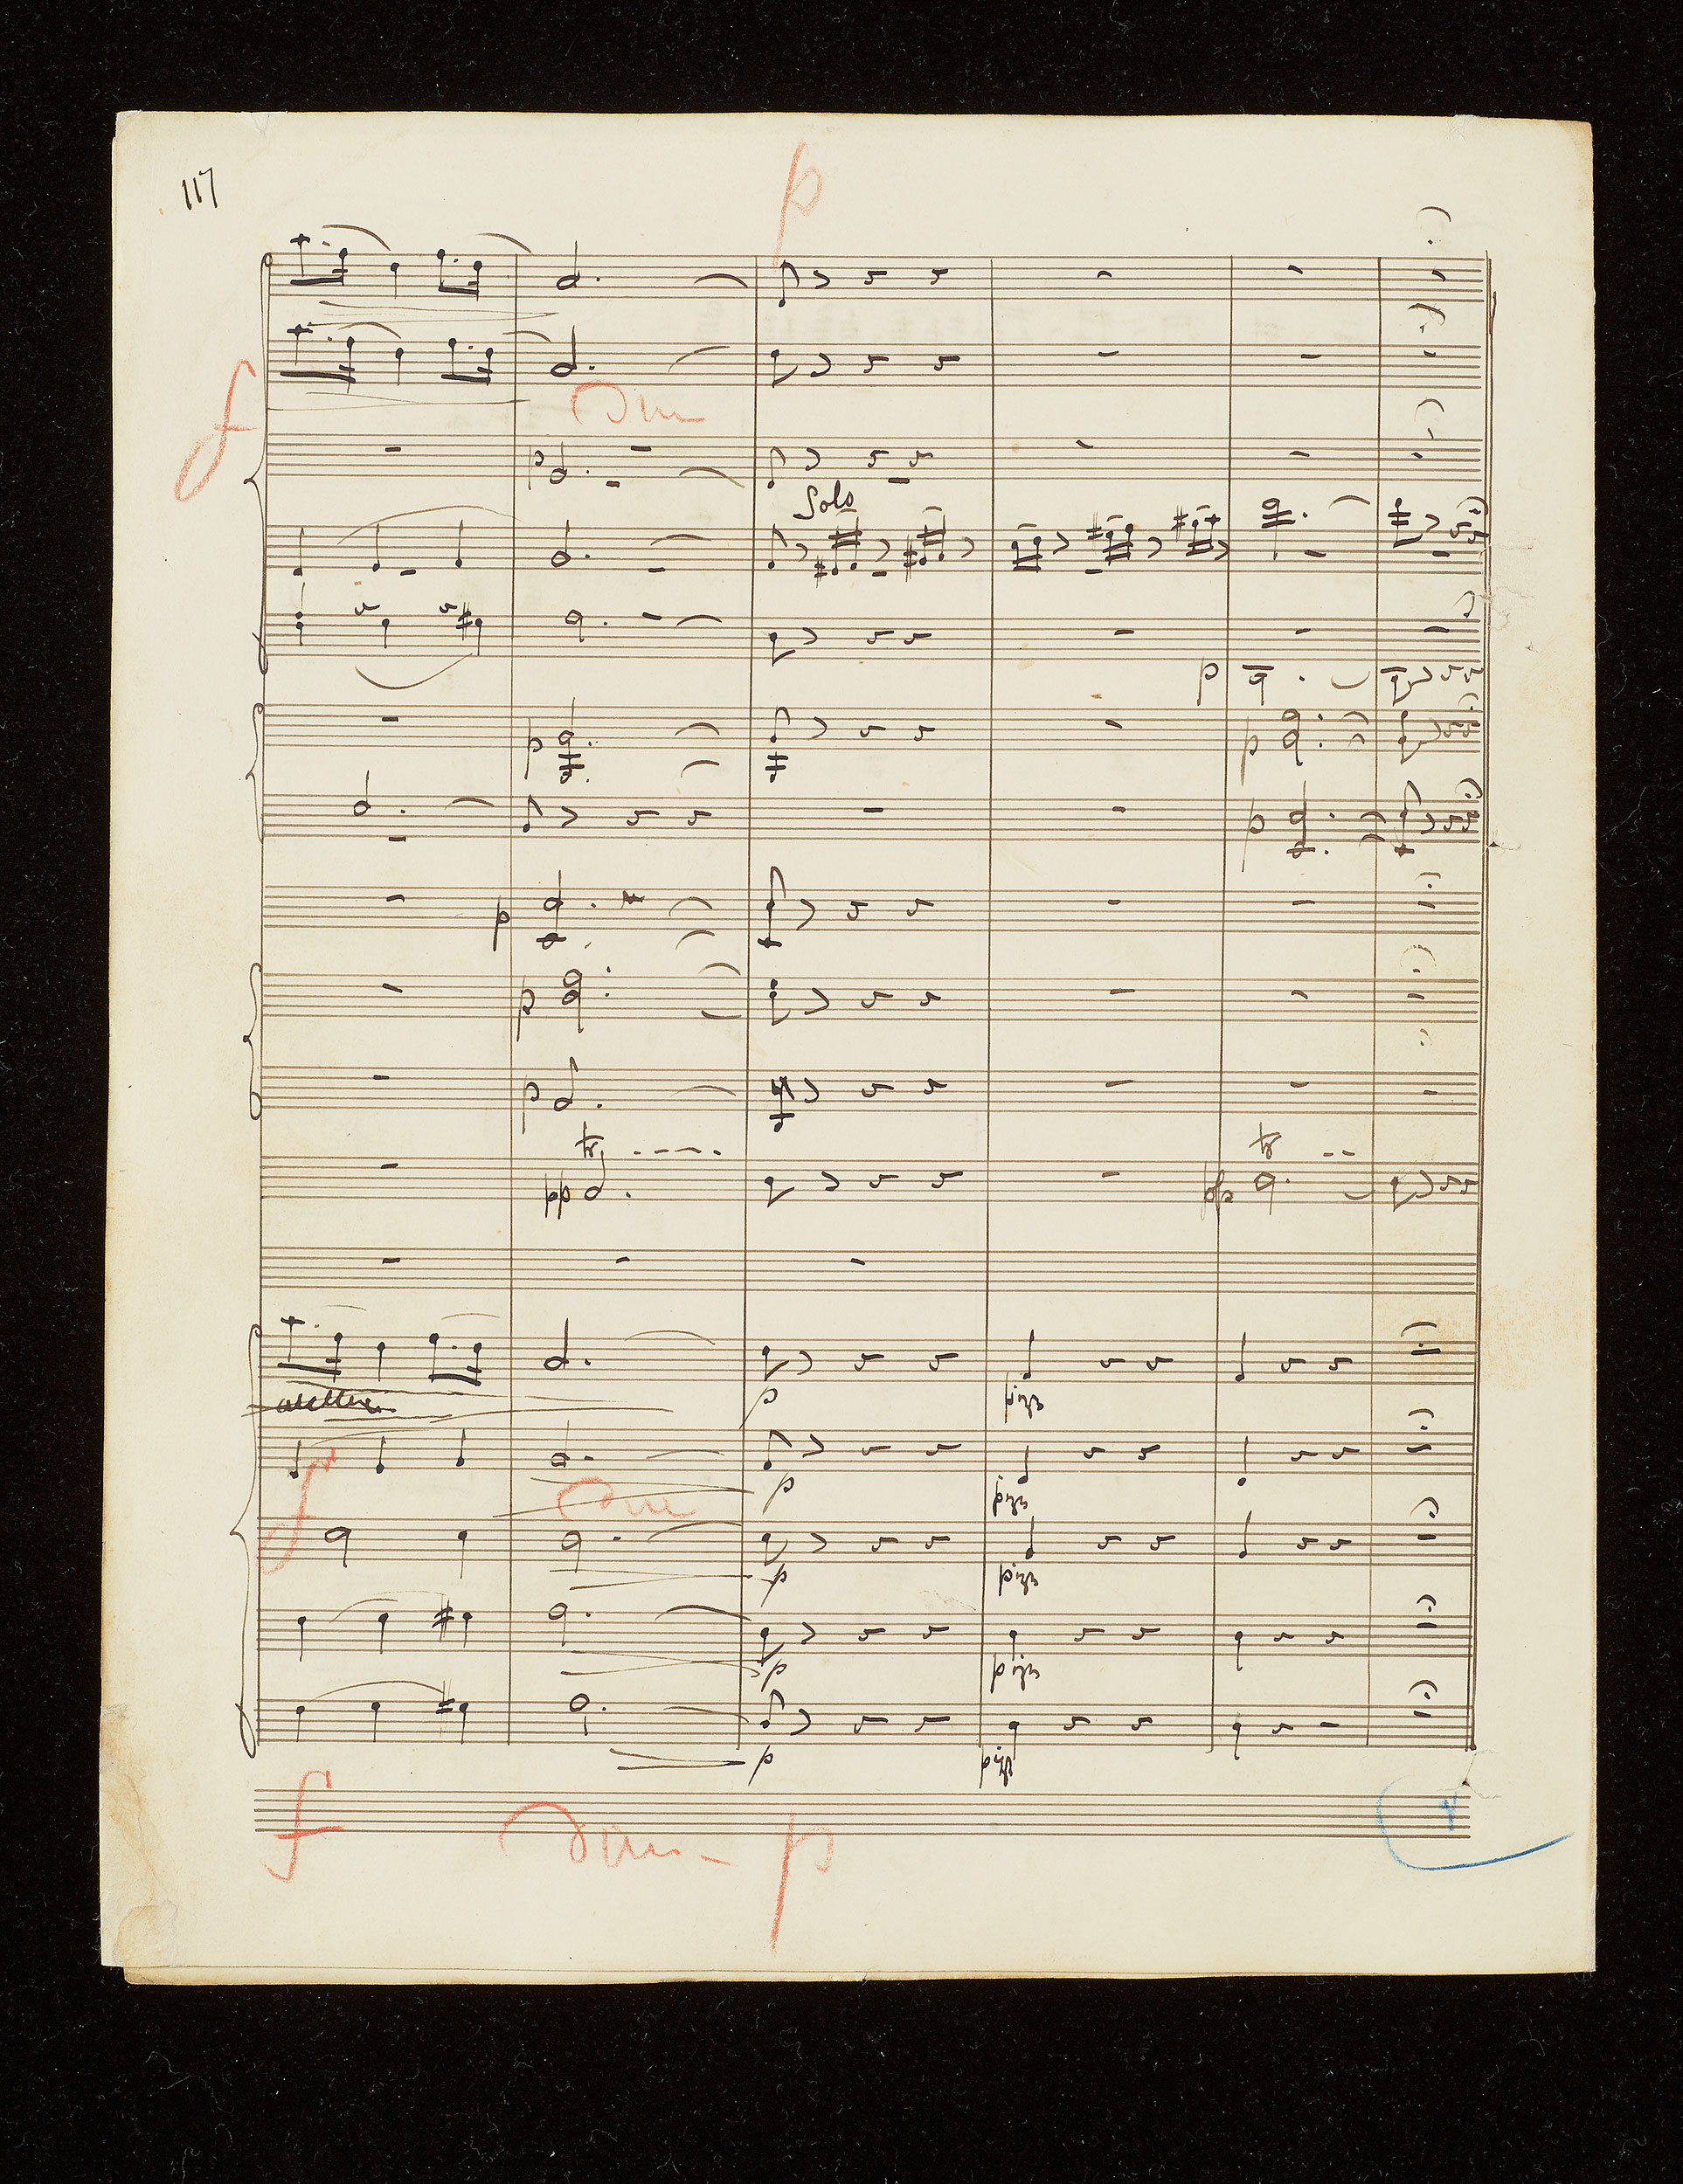 117
p
f
dim
p
Solo
p
p
p
p
p
p
p
tr
tr
pp
pp
p
pizz
f
dim
p
pizz
p
pizz
p
pizz
p
pizz
f
dim
p